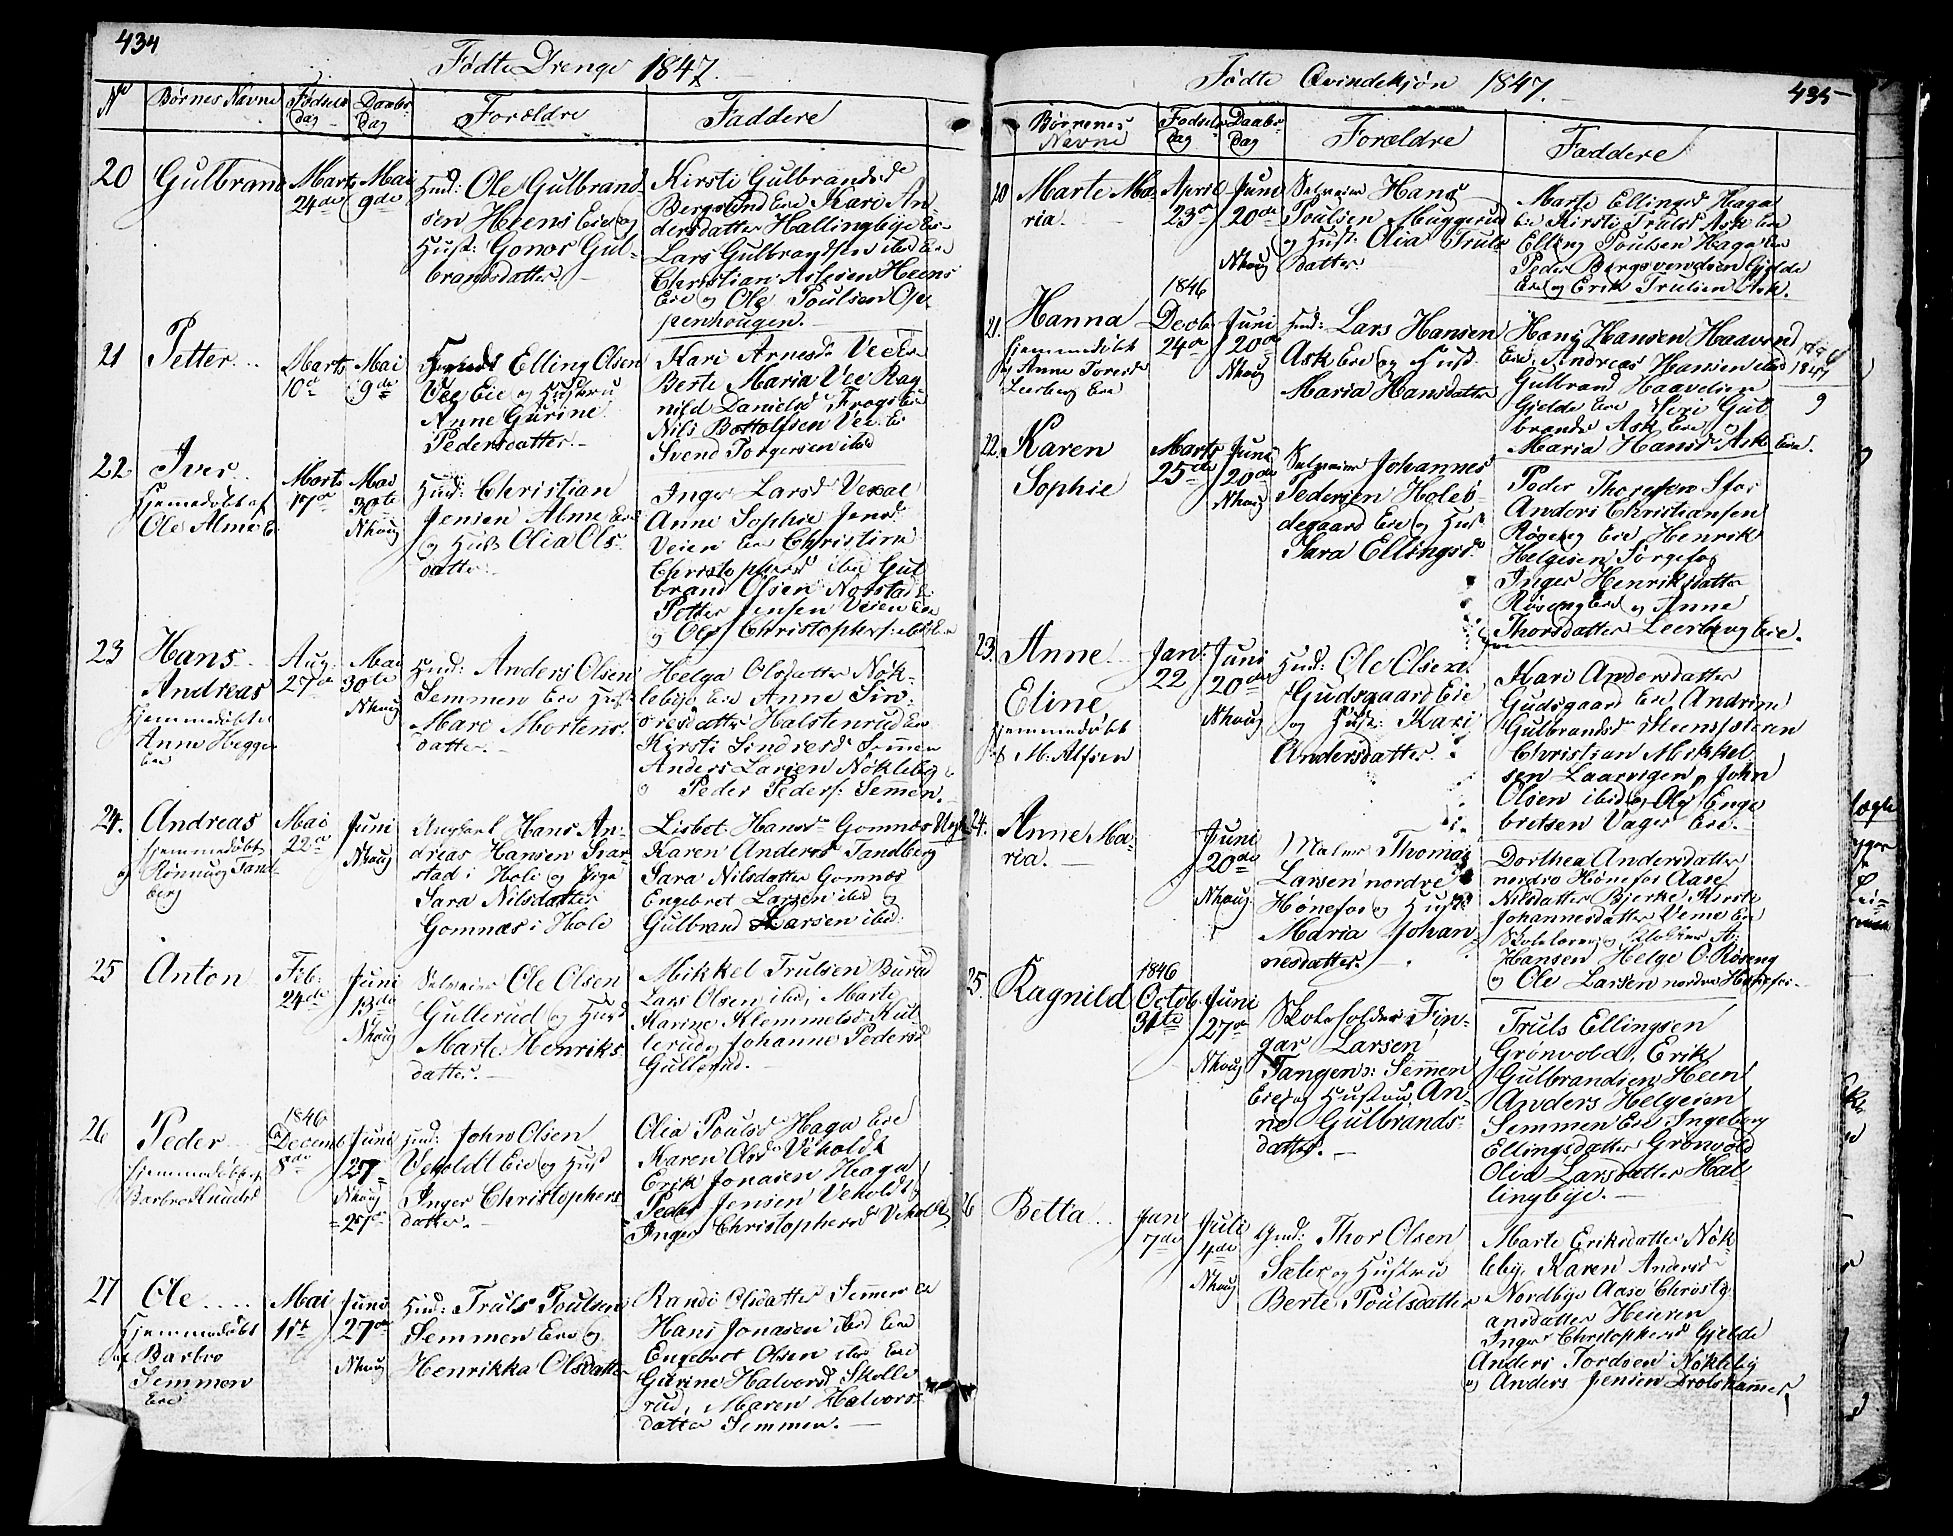 434
Fødte Drenge 1847.
No
Børnes Navne
Fødsels
dag
Daabs
Dag
Forældre
Faddere
20
Gulbrand
Marts
24de
Mai
9de
Hmd: Ole Gulbrand
sen Heens Eie og
Hust: Gonor Gul-
brandsdatter.
Kirsti Gulbrandsd
Bergsund Eie Kari An
dersdatter Hallingbye Eie
Lars Gulbrandsen ibid Eie
Christian Aslesen Heens
Eie og Ole Poulsen Op
penhougen.
21
Petter
Marts
10de
Mai
9de
Elling Olsen
Vee Eie og Hustru
Anne Gurine
Pedersdatter.
Kari Arnesd Vee Eie
Berte Maria Vee Rag
nild Danielsd Frogs Eie
Nils Bottolfsen Vee Ei
Svend Torgersen ibid
22
Iver
Hjemmedøbt af
Ole Alme E
Marts
17de
Mai
30te
Nhoug
Hmd: Christian
Jensen Alme Eie
og Hust Olia Ols
datter.
Inger Larsd Vesal
Anne Sophie Jensd
Veien Eie Christine
Christophersd ibid Gul
brand Olsen Norstad
Petter Jensen Veien Eie
og Ole Christophers: ibid Eie
23
Hans
Andreas
Hjemmedøbt af
Anne Hegge
Eie
Aug.
27de
Mai
30te
Nhoug
Hmd: Anders Olsen
Semmen Eie Hust
Mari Mortens
datter.
Helga Olsdatter Nøk-
lebye Eie Anne Sin-
dresdatter Halstenrud Eie
Kirsti Sindresd Semmen
Anders Larsen Nøklebye
og Peder Peders: Semmen.
24.
Andreas
hjemmedøbt
Rønnaug Tand
berg
Mai
22de
Juni
Nhoug
Ungkarl Hans An-
dreas Hansen
stad i Hole og Pige
Sara Nilsdatter
Gomnæs i Hole
Lisbet Hansd Gomnæs
Karen Andersd Tandberg
Sara Nilsdatter Gomnæs
Engebret Larsen ibid og
Gulbrand Larsen ibid:
25
Anton
Feb:
24de
Juni
13de
Nhoug
Selveier Ole Olsen
Gullerud og Hust
Marte Henriks
datter.
Mikkel Trulsen Burud
Lars Olsen ibid, Marte
Karine Klemmetsd Kul
lerud og Johanne Pedersd
Gullerud.
26
Peder
hjemmedøbt af
Barbro Knudsd
1846
Decemb
8de
Juni
27
Nhoug
27de
Hmd: John Olsen
Veholdt Eie og Hust
Inger Christophers
datter.
Olia Poulsd Haga Eie
Karen Olsd Veholdt
Erik Jonasen Haga
Peder Jensen Veholdt
Inger Christophersd Veholdt
27
Ole
Hjemmedøbt
af Barbro
Semmen
Eie
Mai
1ste
Juni
27de
Nhoug
Hmd: Truls Poulsen
Semmen Eie og
Henrikka Olsdatter
Randi Olsdatter Semmen Eie
Hans Jonasen ibid Eie
Engebret Olsen ibid Eie
Gurine Halvorsd Skolle
rud, Maren Halvors-
datter Semmen.
Fødte Qvindekjøn 1847.
435
Børnenes
Navne
Fødsels
dag
Daabs
Dag
Forældre
Faddere
20
Marte Ma-
ria.
April
23de
Juni
20de
Nhoug
Selveier Hans
Poulsen Muggerud
og Hust: Olia Truls
Datter.
Marte Ellingsd Haga
Eie Kirsti Trulsd Ask Eie
Elling Poulsen Haga Eie
Peder Bergsvendsen Gjelde
Eie og Erik Trulsen Ask.
21.
Hanna
hjemmedøbt
af Anne Toresd
Leerberg Eie
1846
Decbr
24de
Juni
20de
Nhoug
Hmd: Lars Hansen
Ask Eie og Hust
Maria Hansdatter
Hans Hansen Haavend
Eie, Andreas Hansen ibid
Gulbrand Haavelsen
Gjelde Eie Siri Gul
brands Ask Eie og
Maria Hansd Ask Eie.
1847
9
22.
Karen
Sophie
Marts
25de
Juni
20de
Nhoug
Selveier Johannes
Pedersen Holeø-
degaard Eie og Hust
Sara Ellingsd
Peder Thoresen
Anders Christiansen
Røgeng Eie Henrik
Helgesen Sørgefos
Inger Henriksdatter
Røseng Eie og Anne
Thorsdatter Leerberg Eie.
23.
Anne
Eline
hjemmedøbt
af M: Alfsen
Jan:
22
Juni
20de
Nhoug
Hmd: Ole Olsen
Gudsgaard Eie
og Hust: Kari
Andersdatter
Kari Andersdatter
Gudsgaard Eie Andrine
Gulbrandsd
Christian Mikkel
sen Laarvigen, John
Olsen ibid og Ole Enge
bretsen Vager Eie.
24.
Anne Ma-
ria.
Juni
20de
Nhoug
Maler Thomas
Larsen nordre
Hønefos og Hust
Maria Johan-
nesdatter.
Dorthea Andersdatter
nordre Hønefos Aase
Nilsdatter Bjerke, Kirsti
Johannesdatter Veme Eie
Skolelærer
Hansen Helge O. Røseng
og Ole Larsen nordre Hønefos
25.
Ragnild
1846
Octob
31te
Juni
27de
Nhoug
Skoleholder Fin-
gar Larsen
Tangen: Semmen
Eie og Hustru An-
ne Gulbrands-
datter.
Truls Ellingsen
Grønvold, Erik
Gulbrandsen Heen
Anders Helgesen
Semmen Eie Ingeborg
Ellingsdatter Grønvold
Olia Larsdatter Hal
lingbye.
26
Betta
Jan:
7de
Juli
4de
Nhoug
Gmd: Thor Olsen
Sæter og Hustru
Berte Poulsdatter
Marte Eriksdatter Nøk-
lebye Karen Andersd
Nordbye Aase Christi-
ansdatter Heieren
Inger Christophersd Gjelde
Anders Tordsen Nøkleby
og Anders Jensen Drolshammer